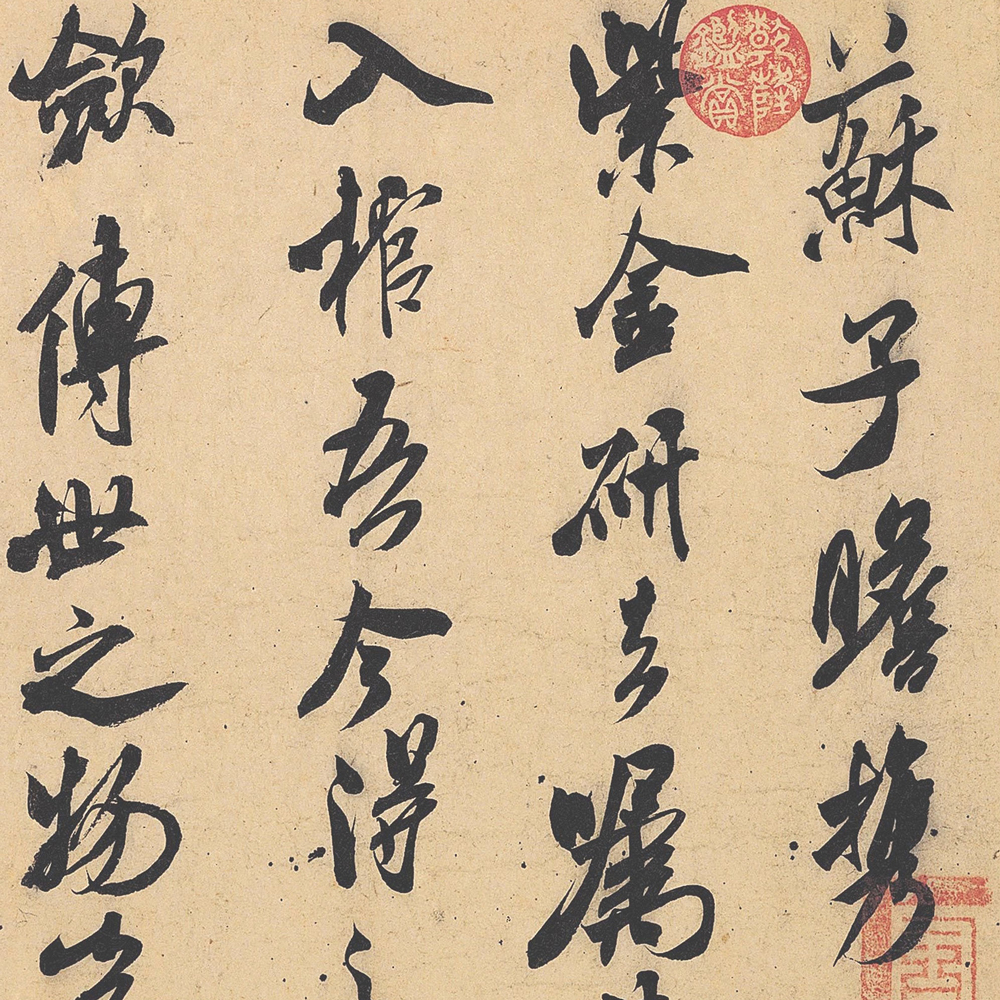 蘇子瞻携
乾隆鑑賞
紫金研去嘱
入棺吾今得
斂傳世之物